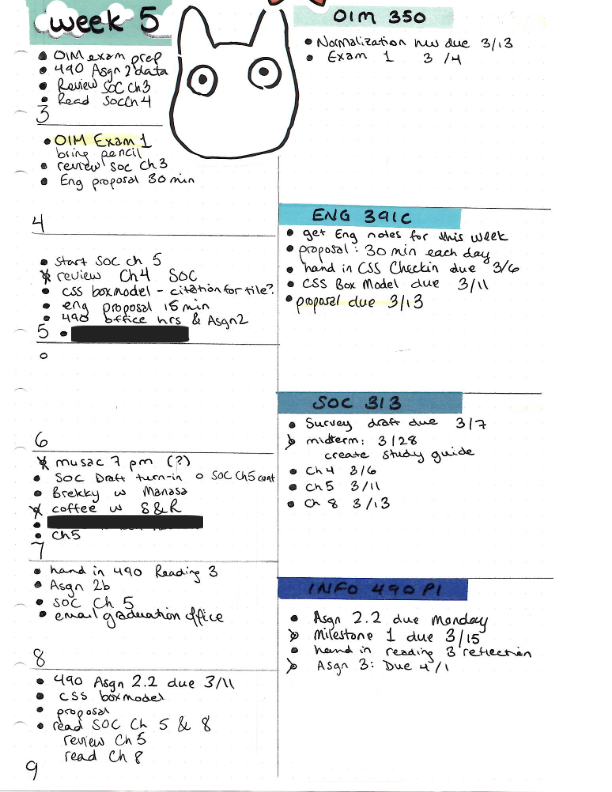 week 5
OIM exam prep
490 Asgn 2 data
Review SOC Ch3
Read SocCh4
3
OIM Exam 1
bring pencil
review Soc Ch.3
Eng proposal 30 min
4
start SOC ch 5
review Ch4 SOC
CSS boxmodel - citation for tile?
eng proposal 15 min
490 office hrs & Asgn2
5
6
musac 7 pm (?)
SOC Draft turn-in o SOC Ch5 cont
Brekky w Manasa
coffee w S&R
Ch5
7
hand in 490 Reading 3
Asgn 2b
SOC Ch 5
email graduation office
8
490 Asgn 2.2 due 3/11
CSS boxmodel
proposal
read SOC Ch 5 & 8
review Ch5
read Ch 8
9
OIM 350
Normalization hw due 3/13
Exam 1 3/4
ENG 391C
get Eng notes for this week
proposal: 30 min each day
hand in CSS Checkin due 3/6
CSS Box Model due 3/11
proposal due 3/13
SOC 313
Survey draft due 3/7
midterm: 3/28
create study guide
Ch 4 3/6
Ch5 3/11
Ch 8 3/13
INFO 490 PI
Asgn 2.2 due Monday
Milestone 1 due 3/15
hand in reading 3 reflection
Asgn 3: Due 4/1